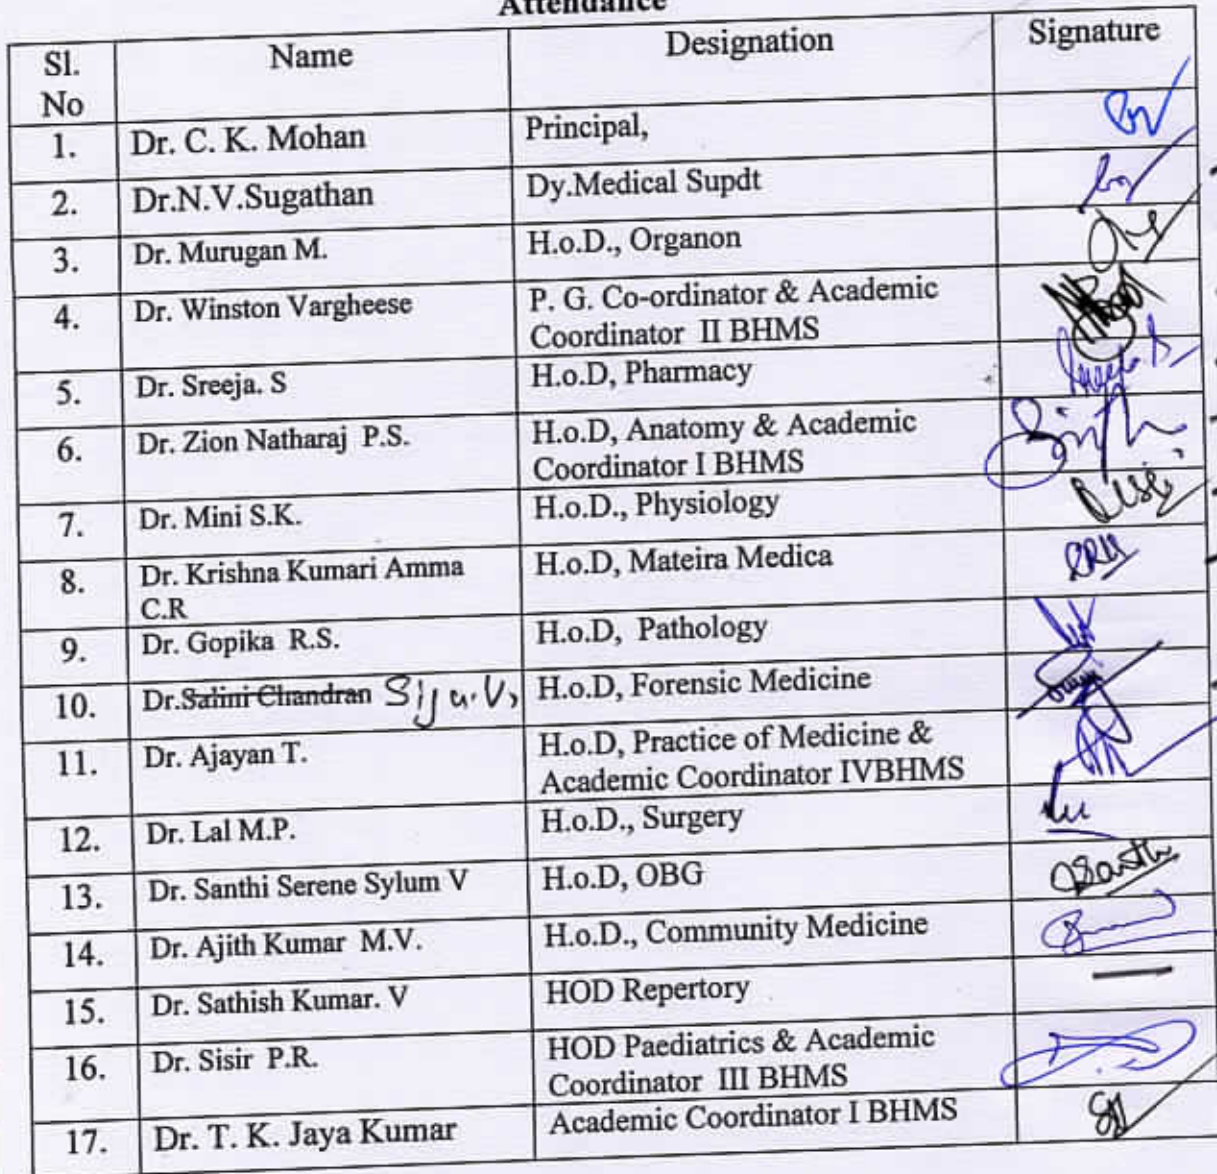 Attendance
Sl. No Name Designation Signature
1. Dr. C. K. Mohan Principal,
2. Dr.N.V.Sugathan Dy.Medical Supdt
3. Dr. Murugan M. H.o.D., Organon
4. Dr. Winston Vargheese P. G. Co-ordinator & Academic
Coordinator II BHMS
5. Dr. Sreeja. S H.o.D, Pharmacy
6. Dr. Zion Natharaj P.S. H.o.D, Anatomy & Academic
Coordinator I BHMS
7. Dr. Mini S.K. H.o.D., Physiology
8. Dr. Krishna Kumari Amma H.o.D, Mateira Medica
C.R
9. Dr. Gopika R.S. H.o.D, Pathology
10. Dr.Salini Chandran Siju.V, H.o.D, Forensic Medicine
11. Dr. Ajayan T. H.o.D, Practice of Medicine &
Academic Coordinator IVBHMS
12. Dr. Lal M.P. H.o.D., Surgery
13. Dr. Santhi Serene Sylum V H.o.D, OBG
14. Dr. Ajith Kumar M.V. H.o.D., Community Medicine
15. Dr. Sathish Kumar. V HOD Repertory
16. Dr. Sisir P.R. HOD Paediatrics & Academic
Coordinator III BHMS
17. Dr. T. K. Jaya Kumar Academic Coordinator I BHMS